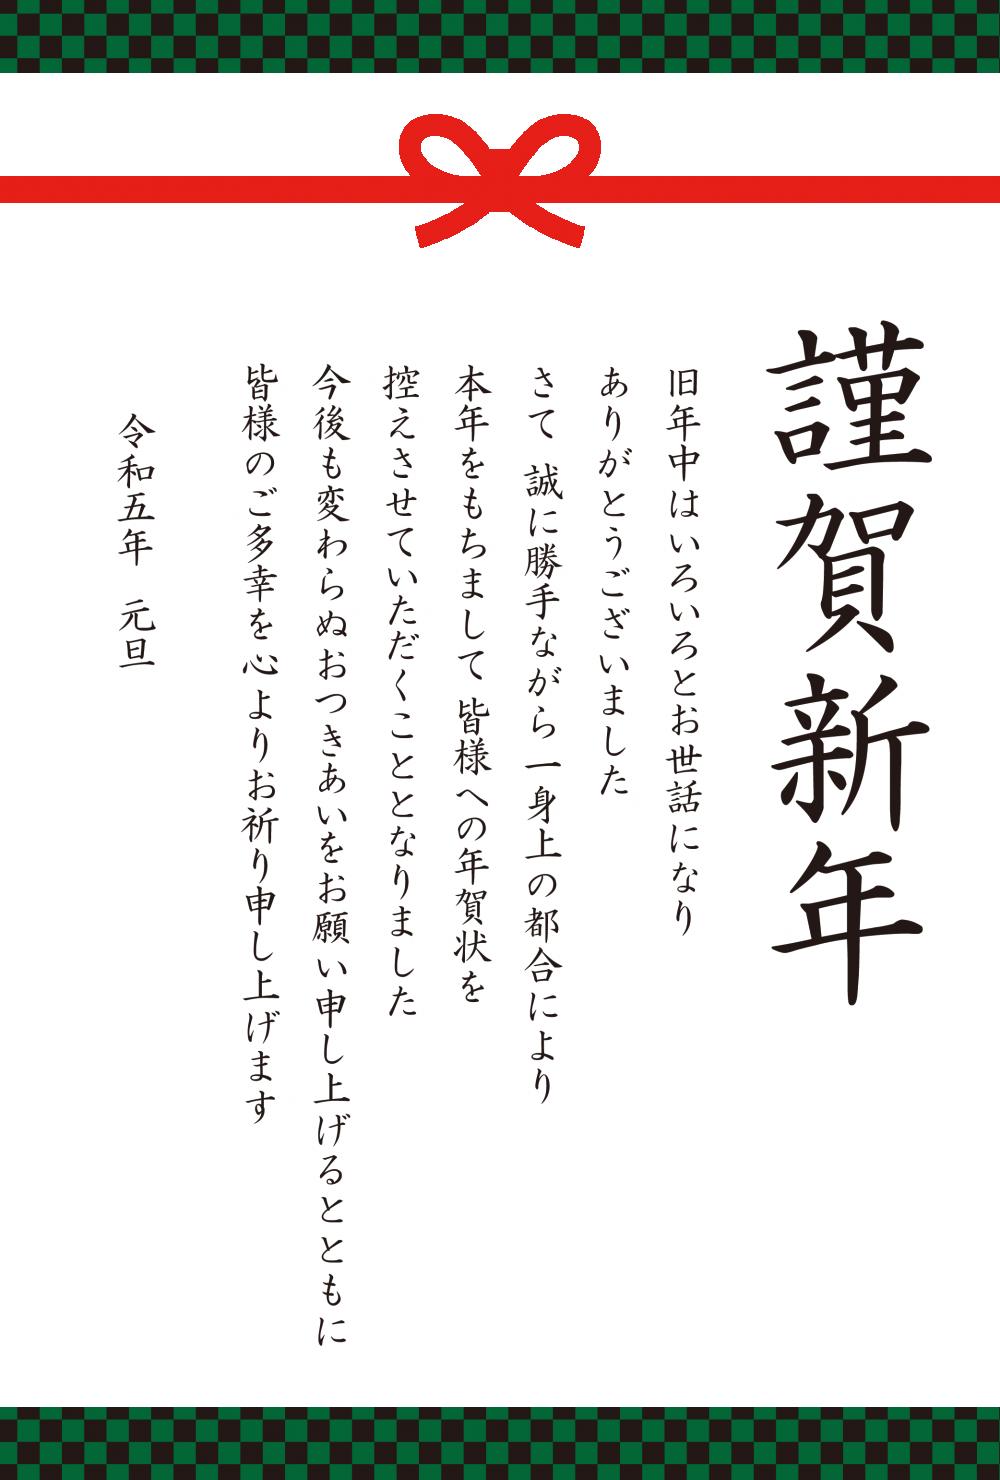 謹賀新年
旧年中はいろいろとお世話になり
ありがとうございました
さて 誠に勝手ながら一身上の都合により
本年をもちまして 皆様への年賀状を
控えさせていただくこととなりました
今後も変わらぬおつきあいをお願い申し上げるとともに
皆様のご多幸を心よりお祈り申し上げます
令和五年　元旦